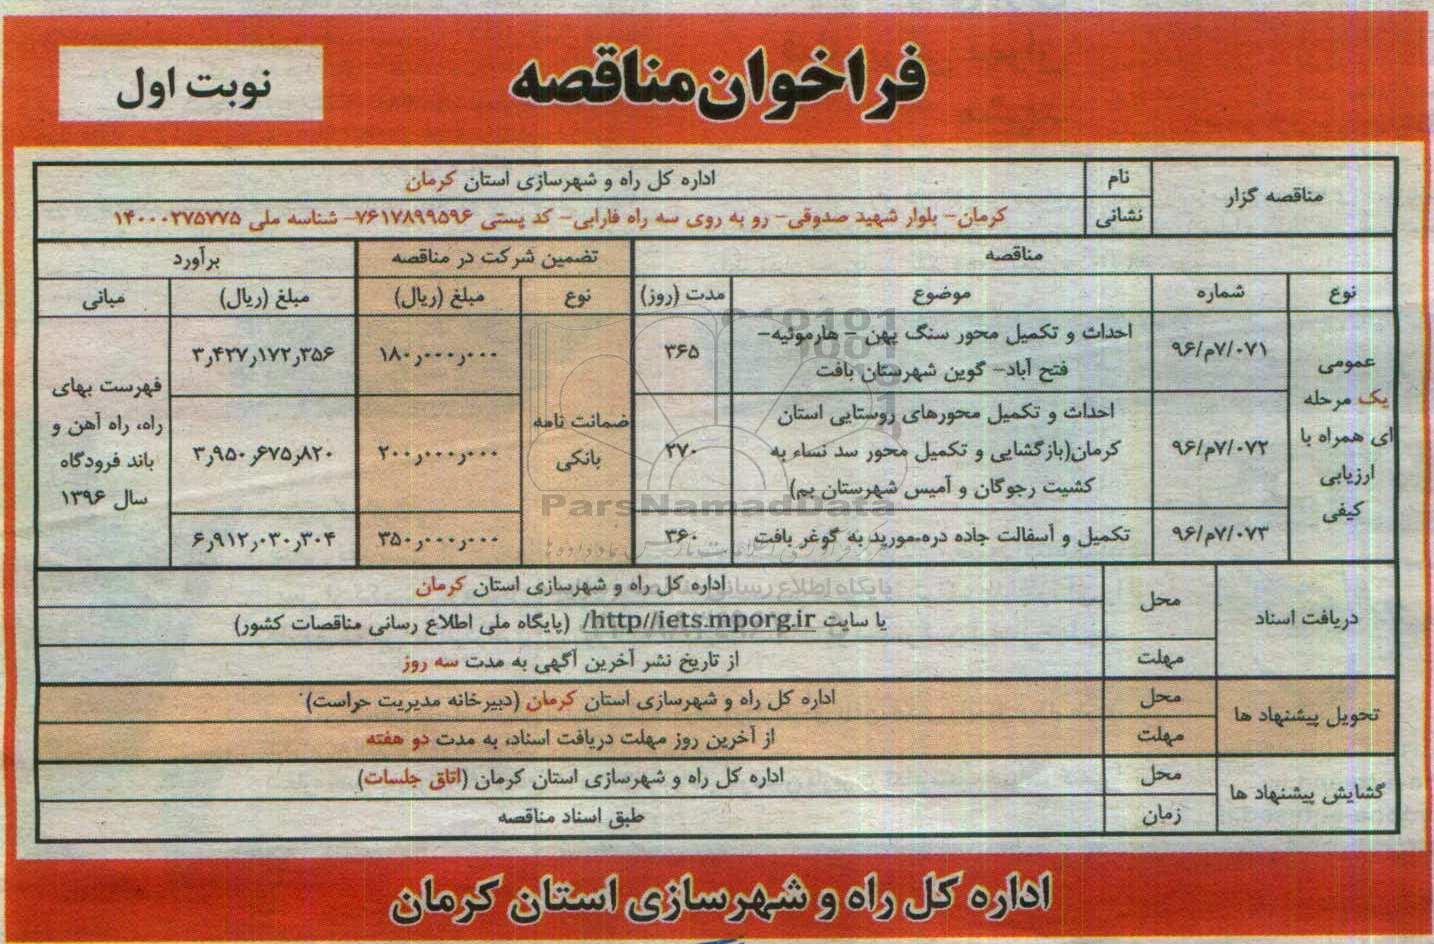 فراخوان مناقصه
نوبت اول
مناقصه گزار
نام
اداره کل راه و شهرسازی استان کرمان
نشانی
کرمان- بلوار شهید صدوقی- رو به روی سه راه فارابی- کد پستی ۷۶۱۷۸۹۹۵۹۶- شناسه ملی ۱۴۰۰۰۲۷۵۷۷۵
مناقصه
تضمین شرکت در مناقصه
برآورد
نوع
شماره
موضوع
مدت (روز)
نوع
مبلغ (ریال)
مبلغ (ریال)
مبانی
عمومی
یک مرحله
ای همراه با
ارزیابی
کیفی
۹۶/م۷/۰۷۱
احداث و تکمیل محور سنگ پهن - هارموئیه-
فتح آباد- گوین شهرستان بافت
۳۶۵
ضمانت نامه
بانکی
۱۸۰,۰۰۰,۰۰۰
۳,۴۲۷,۱۷۲,۳۵۶
فهرست بهای
راه، راه آهن و
باند فرودگاه
سال ۱۳۹۶
۹۶/م۷/۰۷۲
احداث و تکمیل محورهای روستایی استان
کرمان(بازگشایی و تکمیل محور سد نساء به
کشیت رجوگان و آمیس شهرستان بم)
۲۷۰
۲۰۰,۰۰۰,۰۰۰
۳,۹۵۰,۶۷۵,۸۲۰
۹۶/م۷/۰۷۳
تکمیل و آسفالت جاده دره-مورید به گوغر بافت
۳۶۰
۳۵۰,۰۰۰,۰۰۰
۶,۹۱۲,۰۳۰,۳۰۴
ParsNamadData
دریافت اسناد
محل
اداره کل راه و شهرسازی استان کرمان
یا سایت http//iets.mporg.ir/ (پایگاه ملی اطلاع رسانی مناقصات کشور)
مهلت
از تاریخ نشر آخرین آگهی به مدت سه روز
تحویل پیشنهاد ها
محل
اداره کل راه و شهرسازی استان کرمان (دبیرخانه مدیریت حراست)
مهلت
از آخرین روز مهلت دریافت اسناد، به مدت دو هفته
گشایش پیشنهاد ها
محل
اداره کل راه و شهرسازی استان کرمان (اتاق جلسات)
زمان
طبق اسناد مناقصه
اداره کل راه و شهرسازی استان کرمان